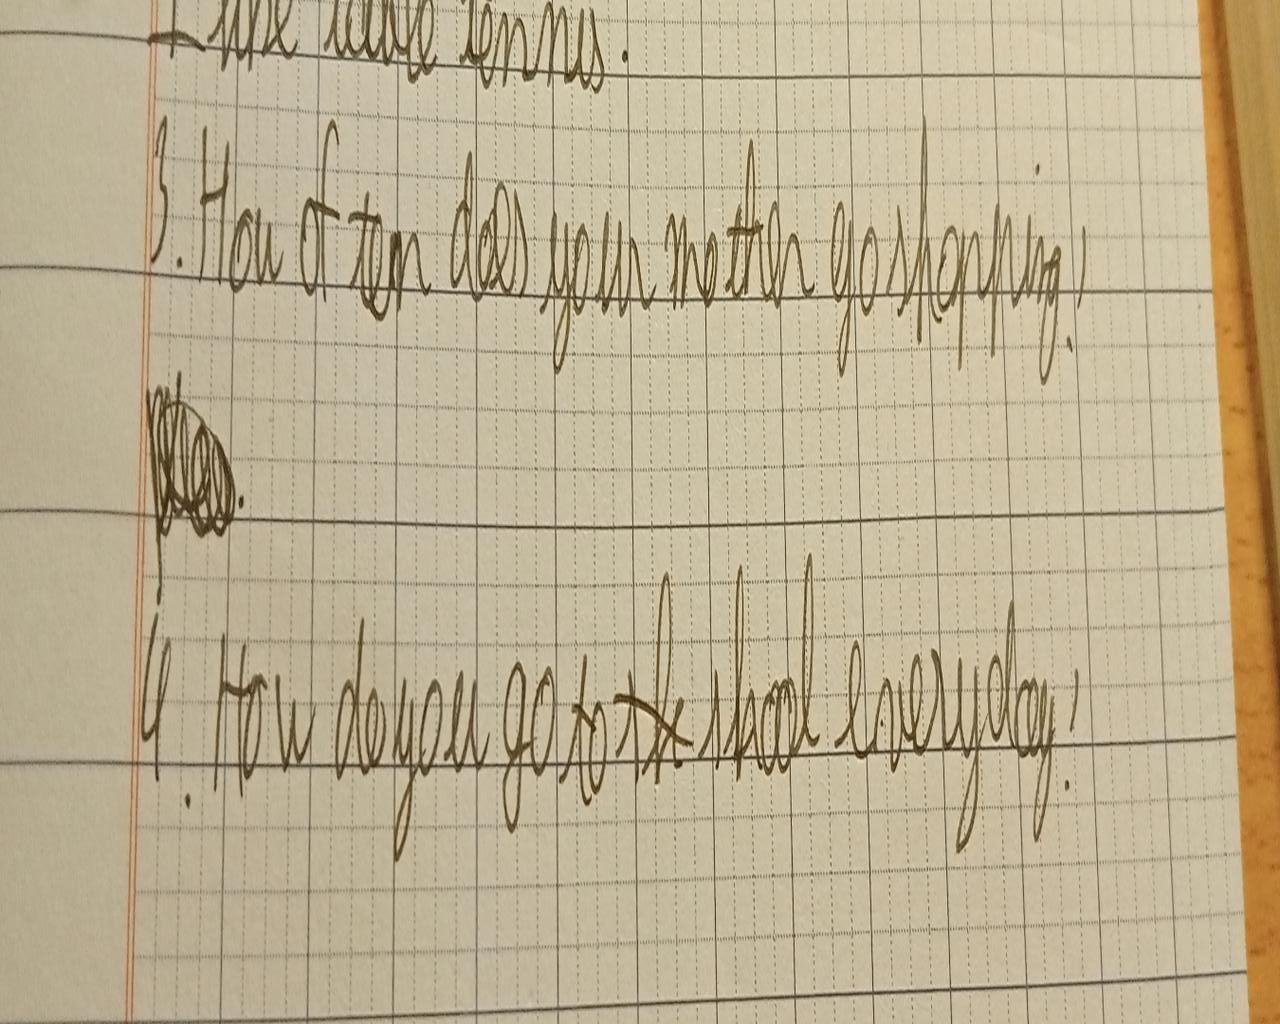 I like table tennis.
3. How often does your mother go shopping?
4. How do you go to the shool everyday?